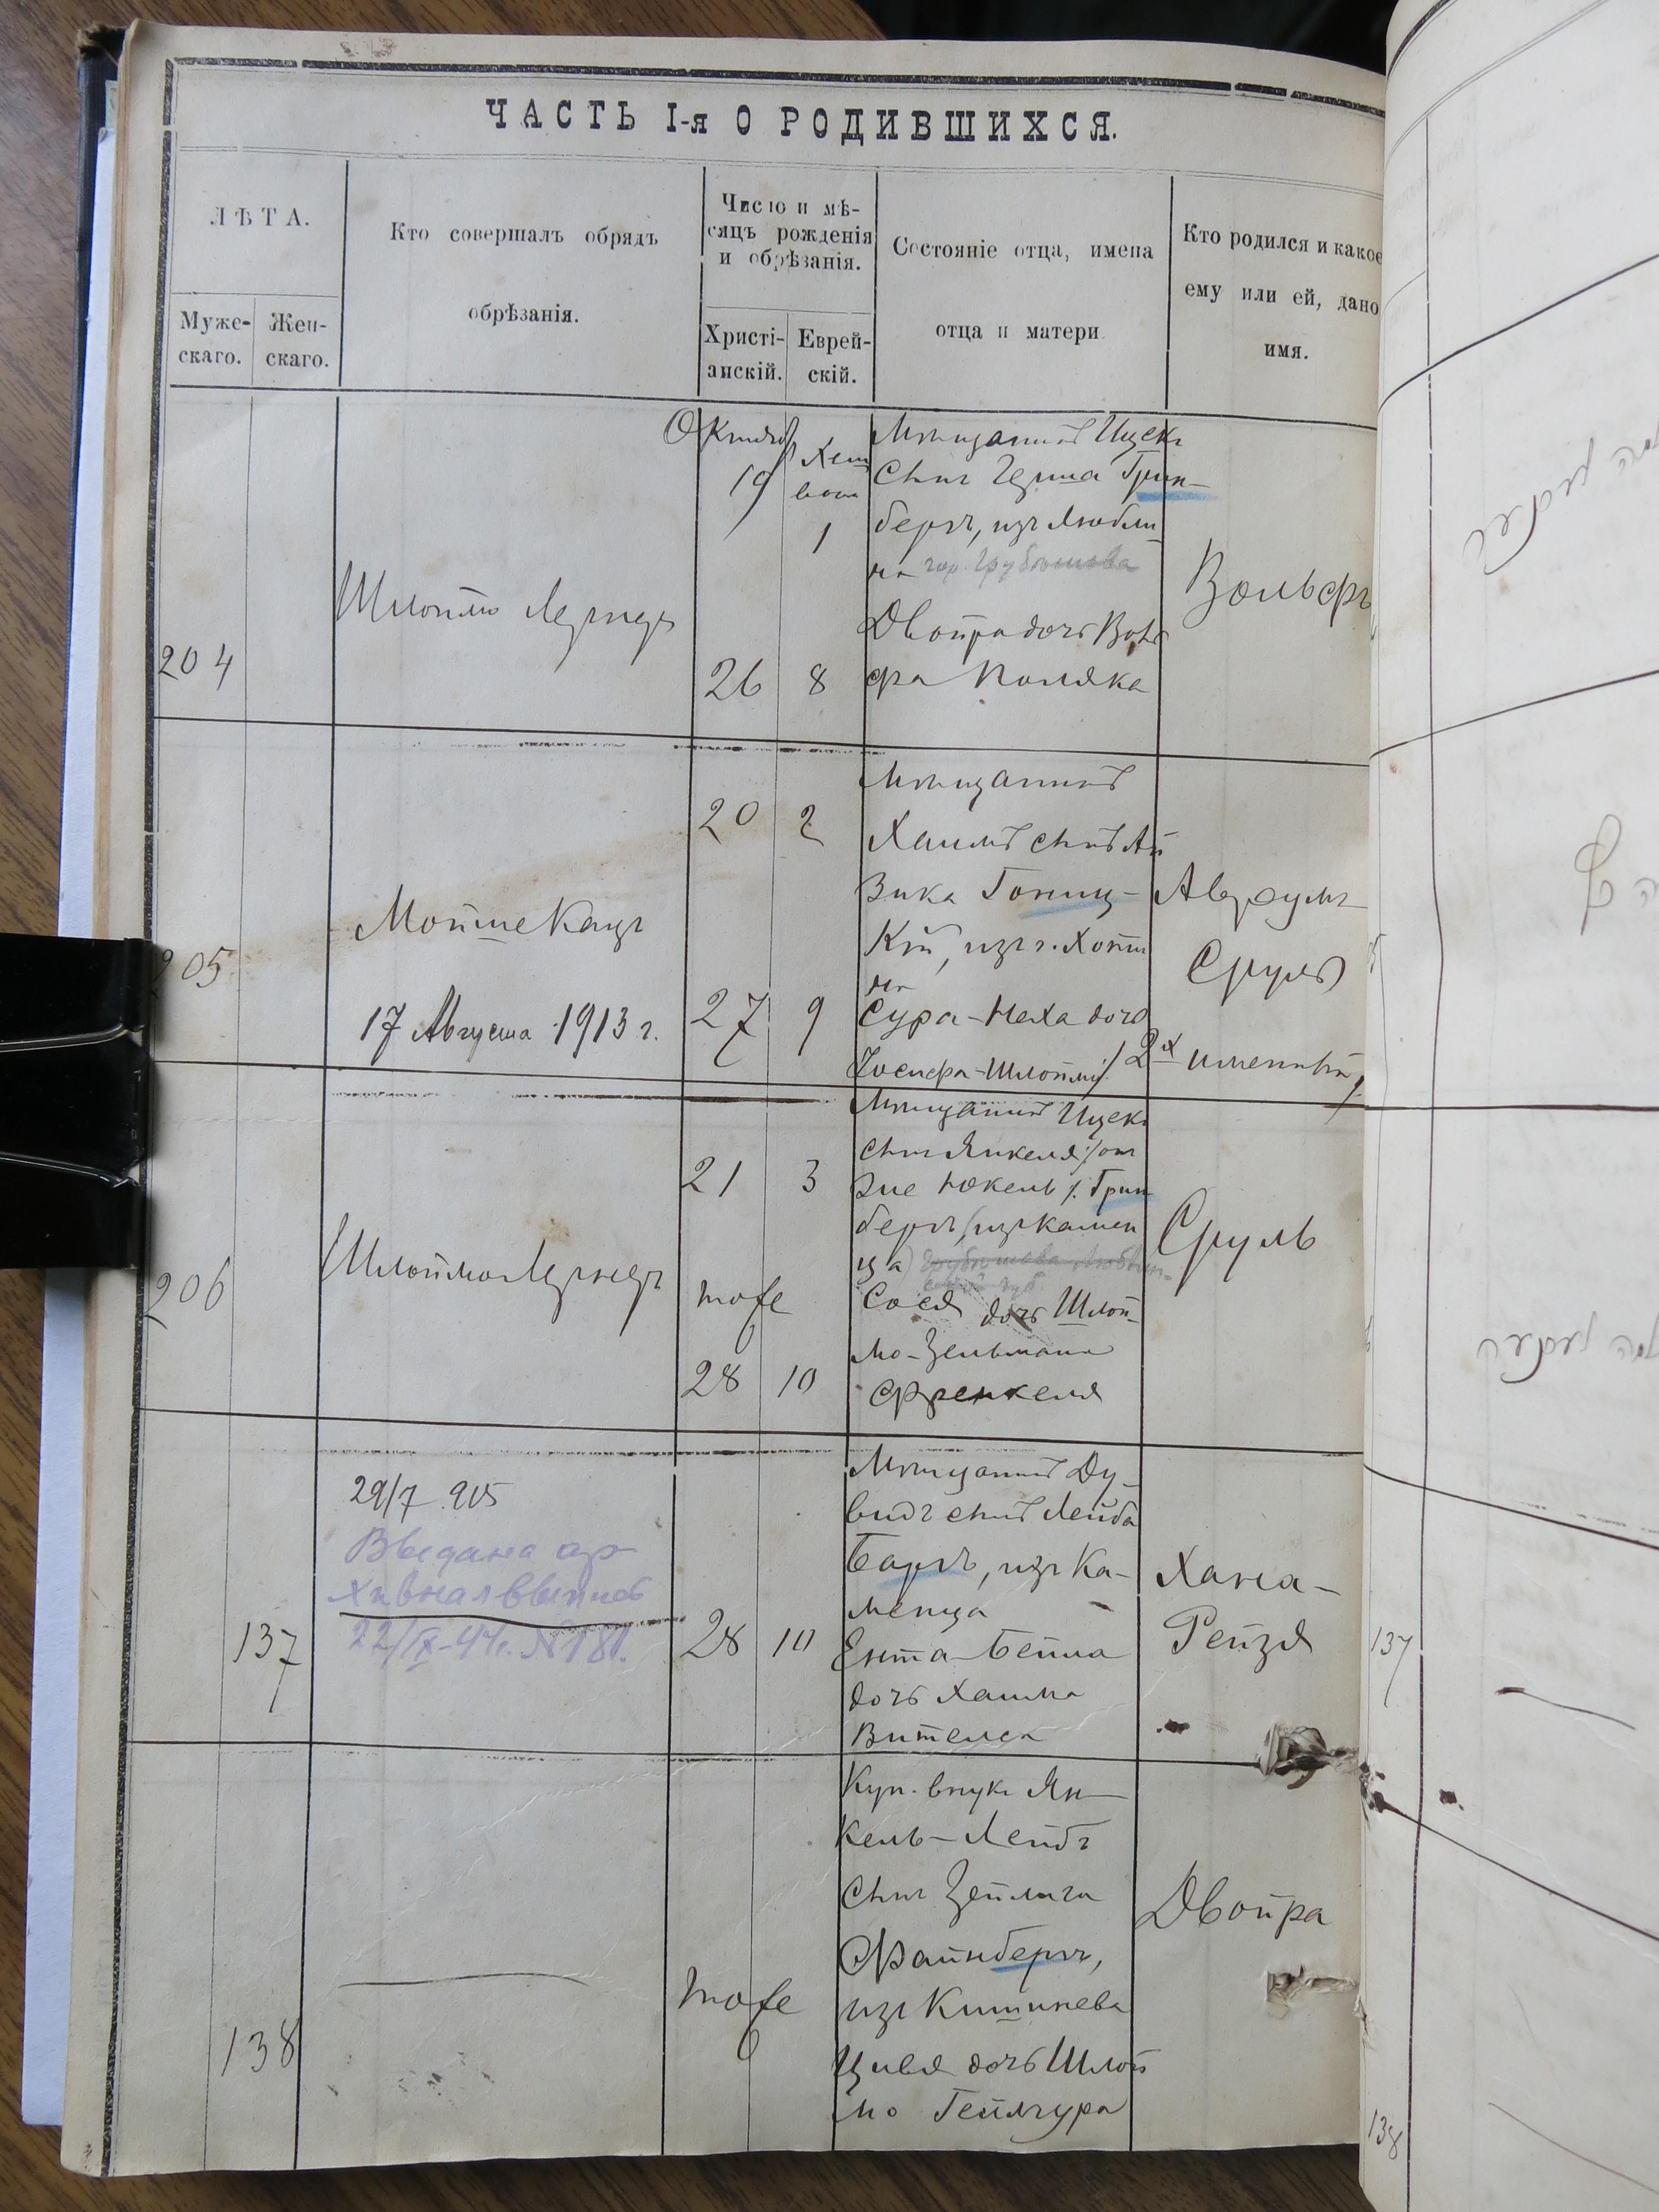 ЧАСТЬ I-я О РОДИВШИХСЯ.
ЛѢТА.
Муже-
скаго.
Жен-
скаго.
Кто совершалъ обрядъ
обрѣзанія.
Число и мѣ-
сяцъ рожденія
и обрѣзанія.
Христі-
анскій.
Еврей-
скій.
Состояніе отца, имена
отца и матери
Кто родился и какое
ему или ей, дано
имя.
204
Шлоймо Лернеръ
Октяб
19
Хеш
вон
1
26
8
Мѣщанинъ Ицекъ
сынъ Герша Грин-
бергъ, изъ Любли
на гор. Грубешова
Двойра дочь Воль
фа Поляка
Вольфъ
205
Мойше Кацъ
17 Августа 1913 г.
20
2
27
9
Мѣщанинъ
Хаимъ сынъ Ай
зика Гониц-
кій, изъ г. Хоти
на
Сура-Неха дочь
Іосифа-Шлоймы
Авrумъ
Сруль
2х именный
206
Шлоймо Лернеръ
21
3
тоже
28
10
Мѣщанинъ Ицекъ
сынъ Янкеля /он
же Юкель/ Грин
бергъ, изъ Камен
ца
Сося дочь Шлой-
мо-Зельмана
Френкеля
Сруль
137
29/7 905
Выдана ар-
хивная выпись
22/IX-41г. №181.
28
10
Мѣщанинъ Ду-
видъ сынъ Лейба
Баргъ, изъ Ка-
менца
Ента-Бейла
дочь Хаима
Вителса
Хана-
Рейзя
138
тоже
Куп. внукъ Ян-
кель-Лейбъ
сынъ Зейлига
Файнбергъ,
изъ Кишинева
Цивя дочь Шлой
мо Гейлгура
Двойра
137
138